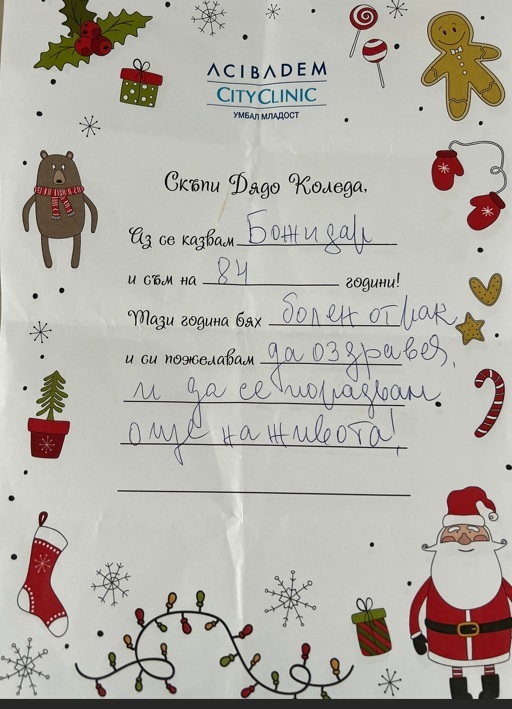 ACIBADEM
CITYCLINIC
УМБАЛ МЛАДОСТ
Скъпи Дядо Коледа,
Аз се казвам Божидар
и съм на 84 години!
Тази година бях болен от рак
и си пожелавам да оздравея,
и да се порадвам
още на живота!